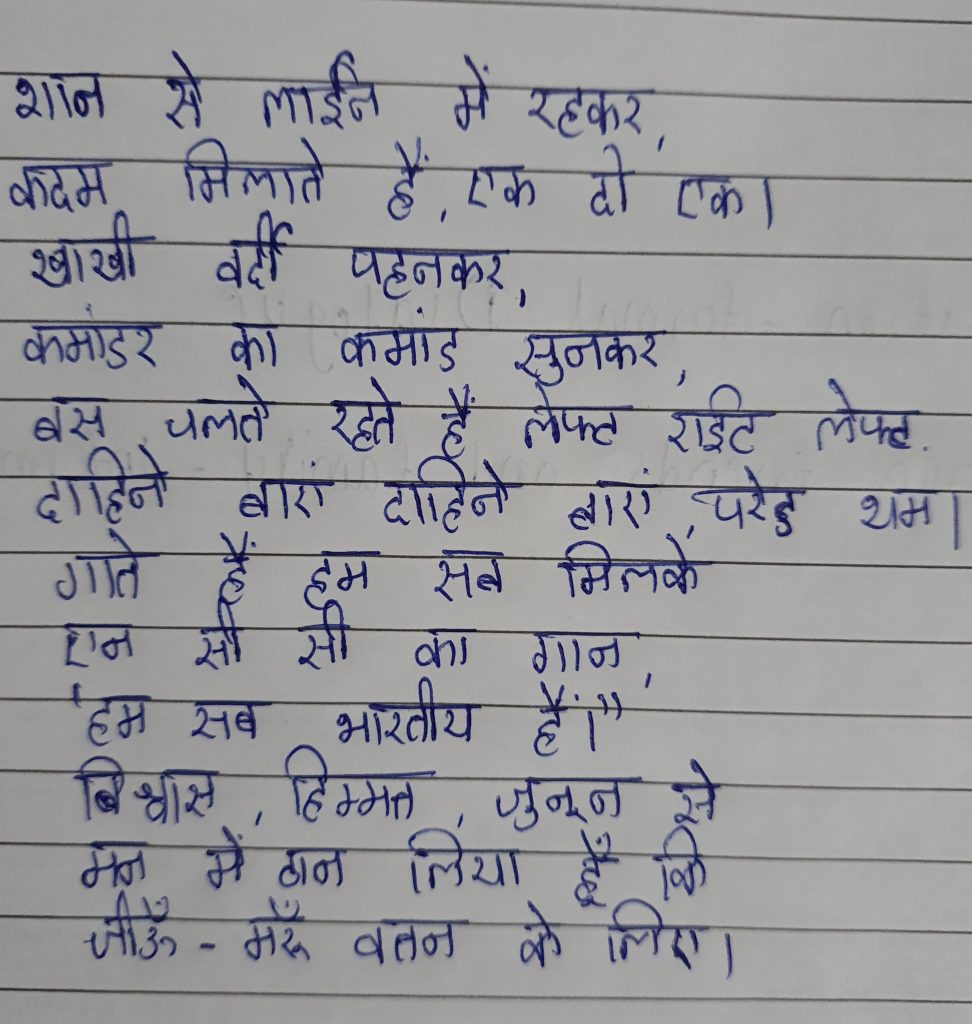 शान से लाईन में रहकर,
कदम मिलाते हैं, एक दो एक।
खाखी वर्दी पहनकर,
कमांडर का कमांड सुनकर,
बस चलते रहते हैं लेफ्ट राईट लेफ्ट.
दाहिने बाएं दाहिने बाएं, परेड थम।
गाते हैं हम सब मिलके
एन सी सी का गान,
'हम सब भारतीय हैं।”
बिश्वास, हिम्मत, जुनून से
मन में ठान लिया हूँ कि
जीऊँ - मरूँ वतन के लिए।